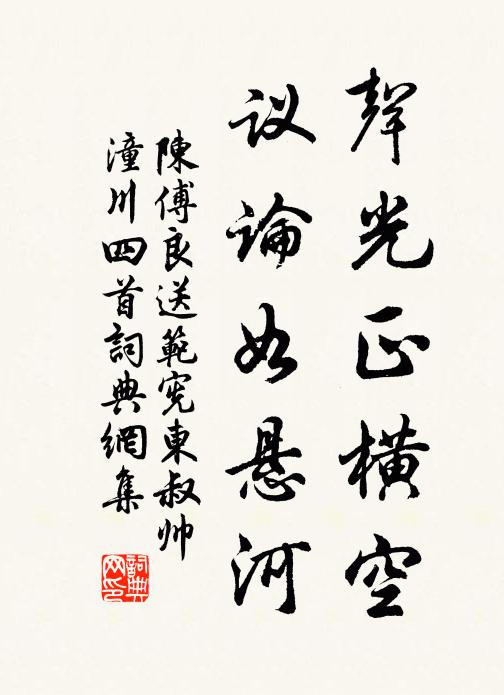 聲光正橫空
议論如悬河
陳傅良送範宪東叔帅
潼川四首詞典網集
詞典
网印